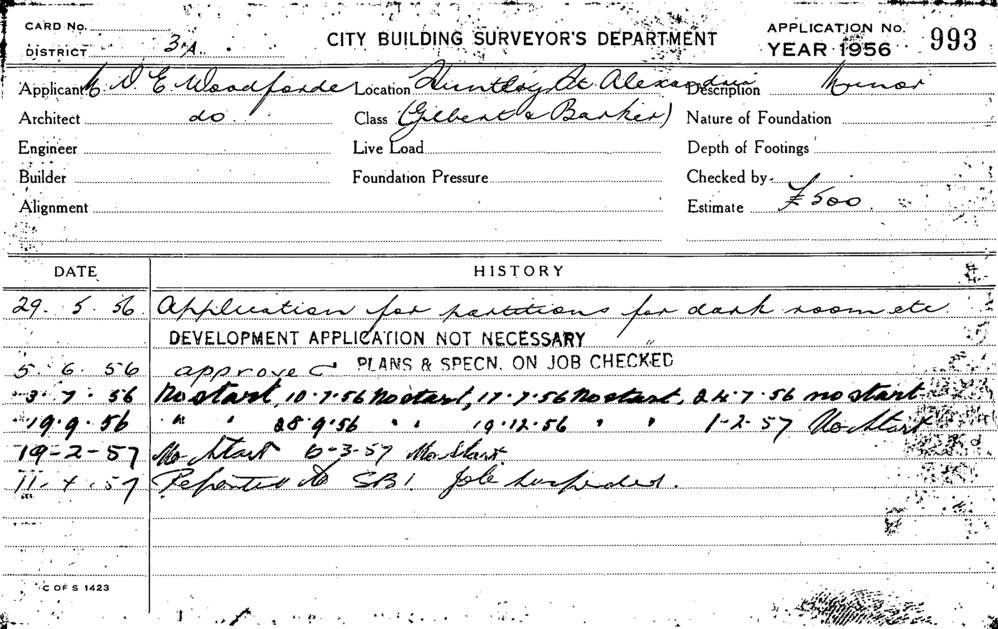 CARD No.
DISTRICT 3A
CITY BUILDING SURVEYOR'S DEPARTMENT
APPLICATION No. 993
YEAR 1956
Applicant D E Woodforde Location Huntley St Alexandria Description Minor
Architect do Class (Gilbert & Barker) Nature of Foundation
Engineer Live Load Depth of Footings
Builder Foundation Pressure Checked by
Alignment Estimate £500
DATE HISTORY
29. 5. 56 Application for partitions for dark room etc
DEVELOPMENT APPLICATION NOT NECESSARY
5. 6. 56 approved PLANS & SPECN. ON JOB CHECKED
3. 7. 56 No start, 10.7.56 No start, 17.7.56 No start, 24.7.56 no start
19.9.56 " " 28.9.56 " " 19.12.56 " " 1-2-57 No Start
19-2-57 No Start 6-3-57 No Start
11. 4. 57 Reported to SBI Job suspended.
C OF S 1423